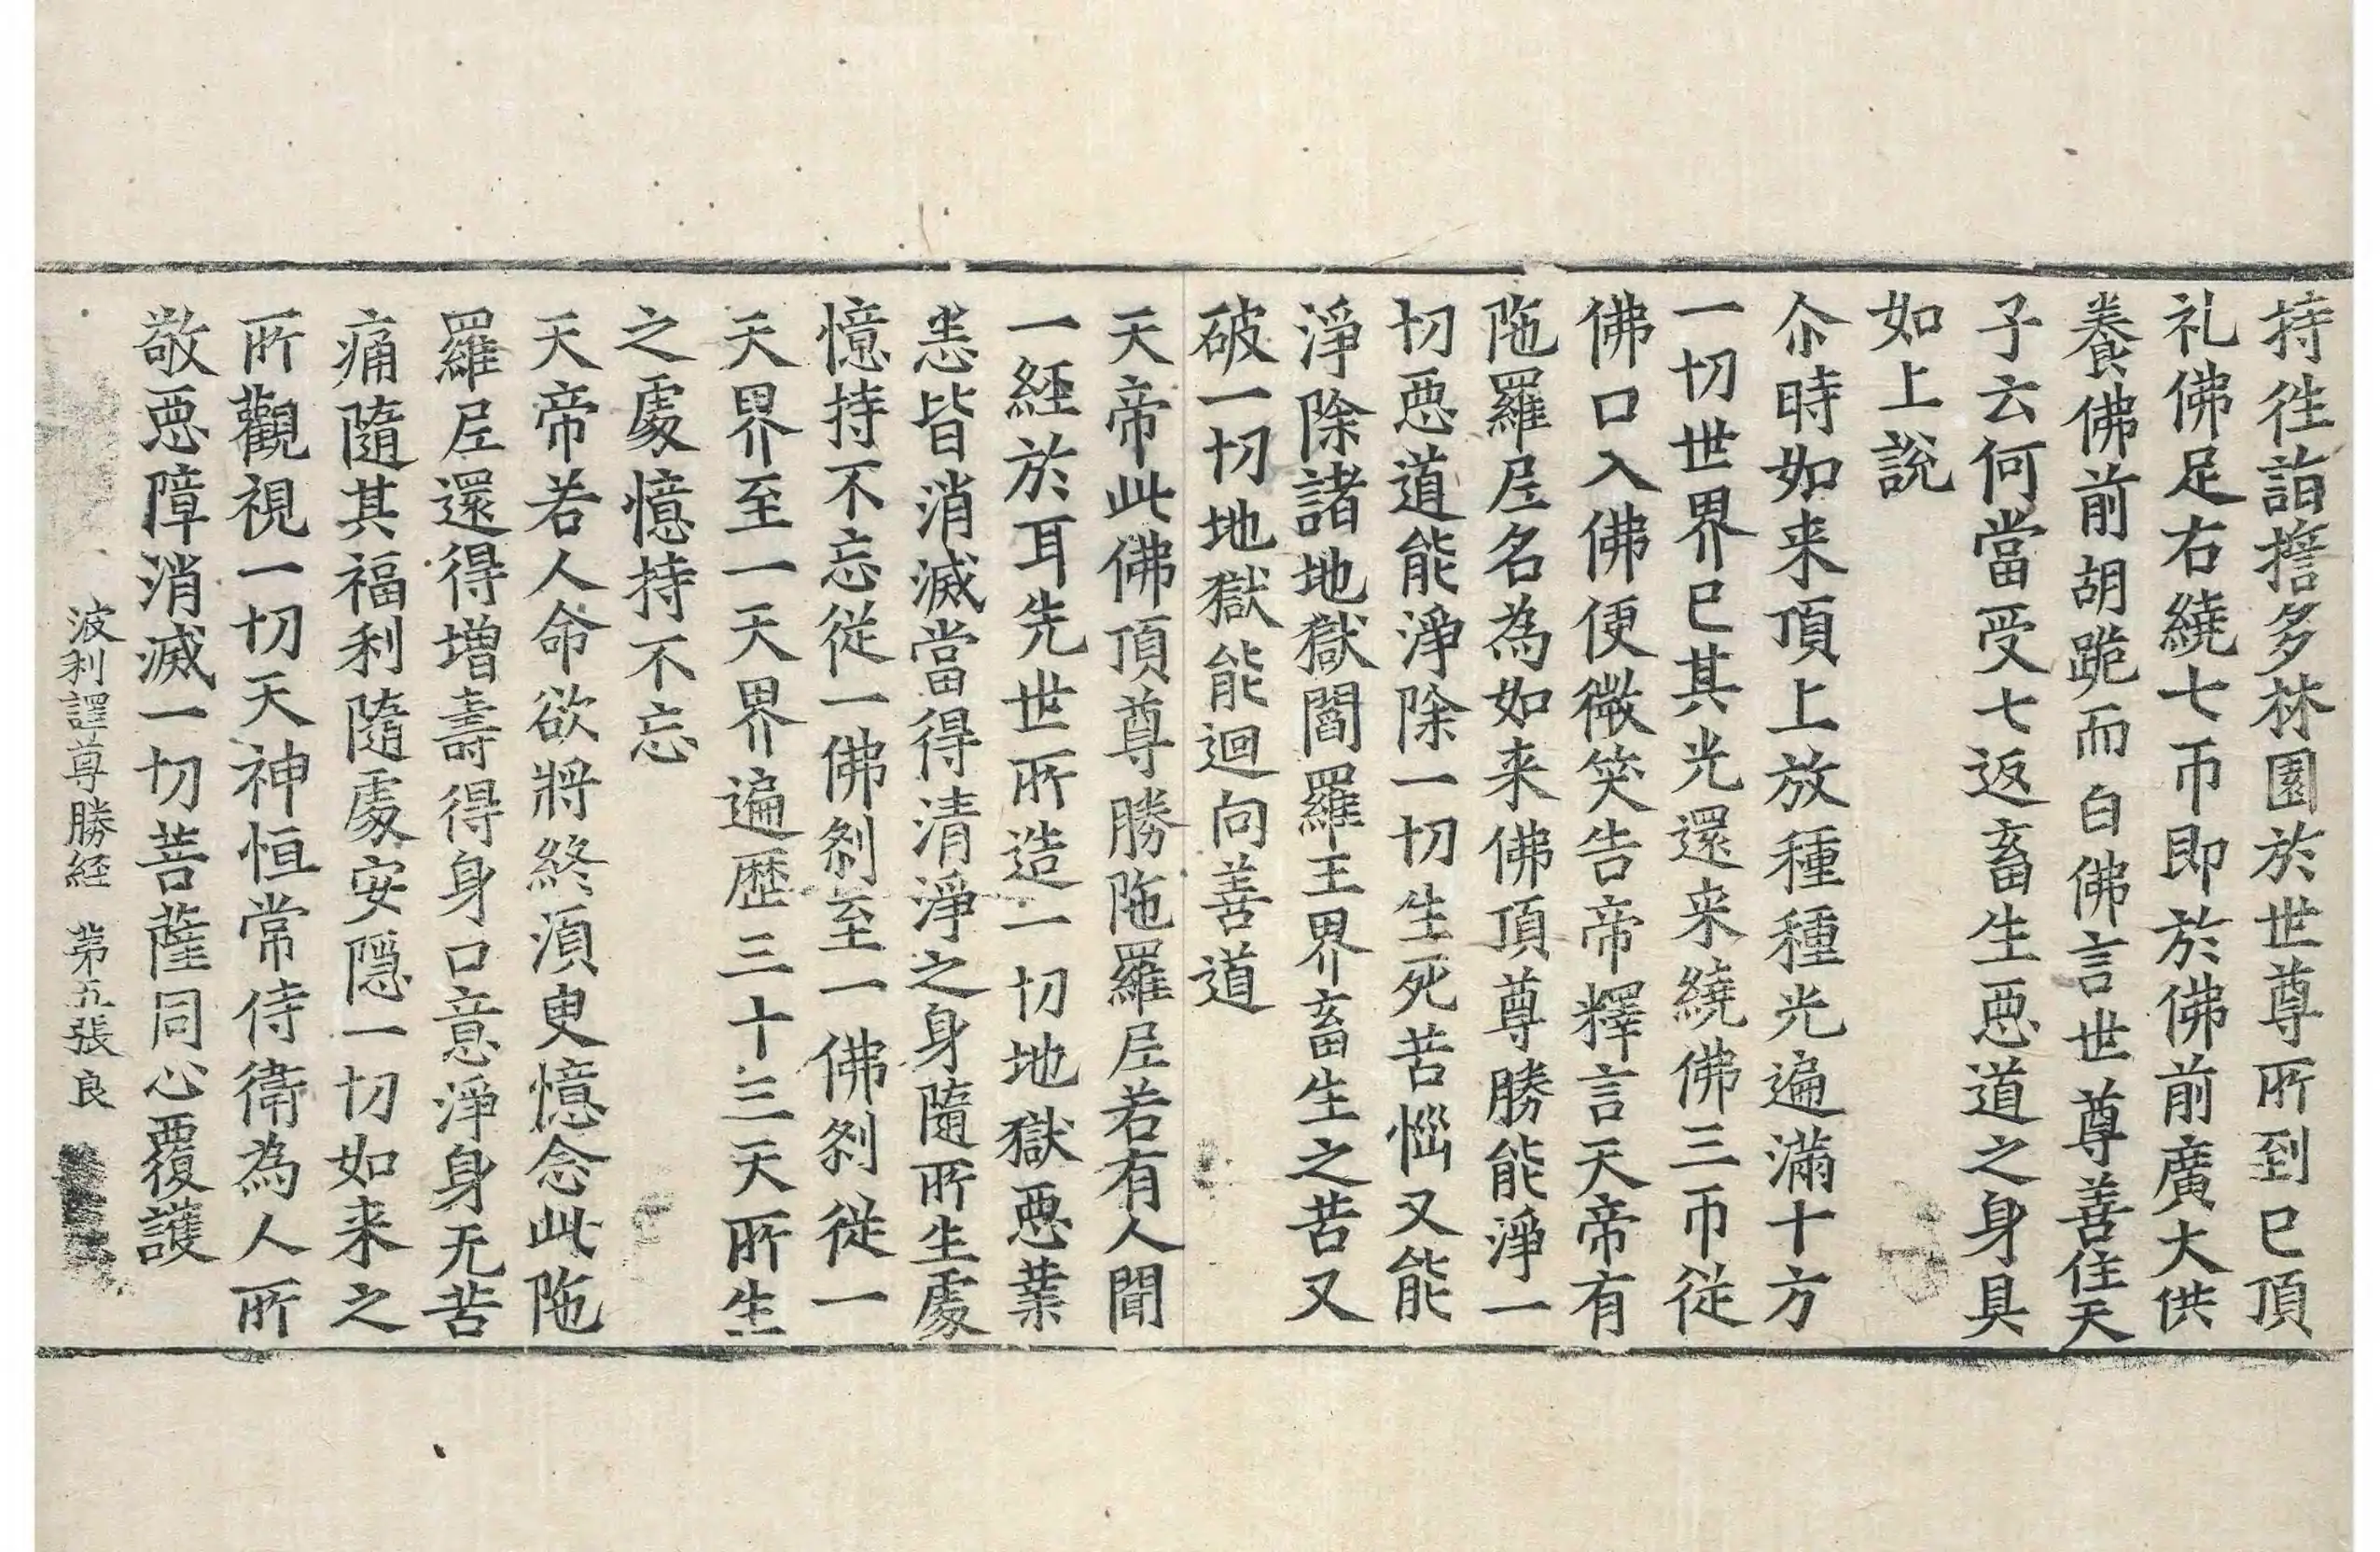 持往詣誓多林園於世尊所到已頂
礼佛足右繞七帀即於佛前廣大供
養佛前胡跪而白佛言世尊善住天
子云何當受七返畜生惡道之身具
如上説
尒時如来頂上放種種光遍滿十方
一切世界已其光還来繞佛三帀從
佛口入佛便微笑告帝釋言天帝有
陁羅尼名為如来佛頂尊勝能淨一
切惡道能淨除一切生死苦惱又能
淨除諸地獄閻羅王界畜生之苦又
破一切地獄能迴向善道
天帝此佛頂尊勝陁羅尼若有人聞
一經於耳先世所造一切地獄惡業
悉皆消滅當得清淨之身隨所生處
憶持不忘從一佛刹至一佛刹從一
天界至一天界遍歷三十三天所生
之處憶持不忘
天帝若人命欲將終湏臾憶念此陁
羅尼還得増壽得身口意淨身无苦
痛隨其福利隨處安隱一切如来之
所觀視一切天神恒常侍衛為人所
敬惡障消滅一切菩薩同心覆護
波利譯尊勝經 第五張 良